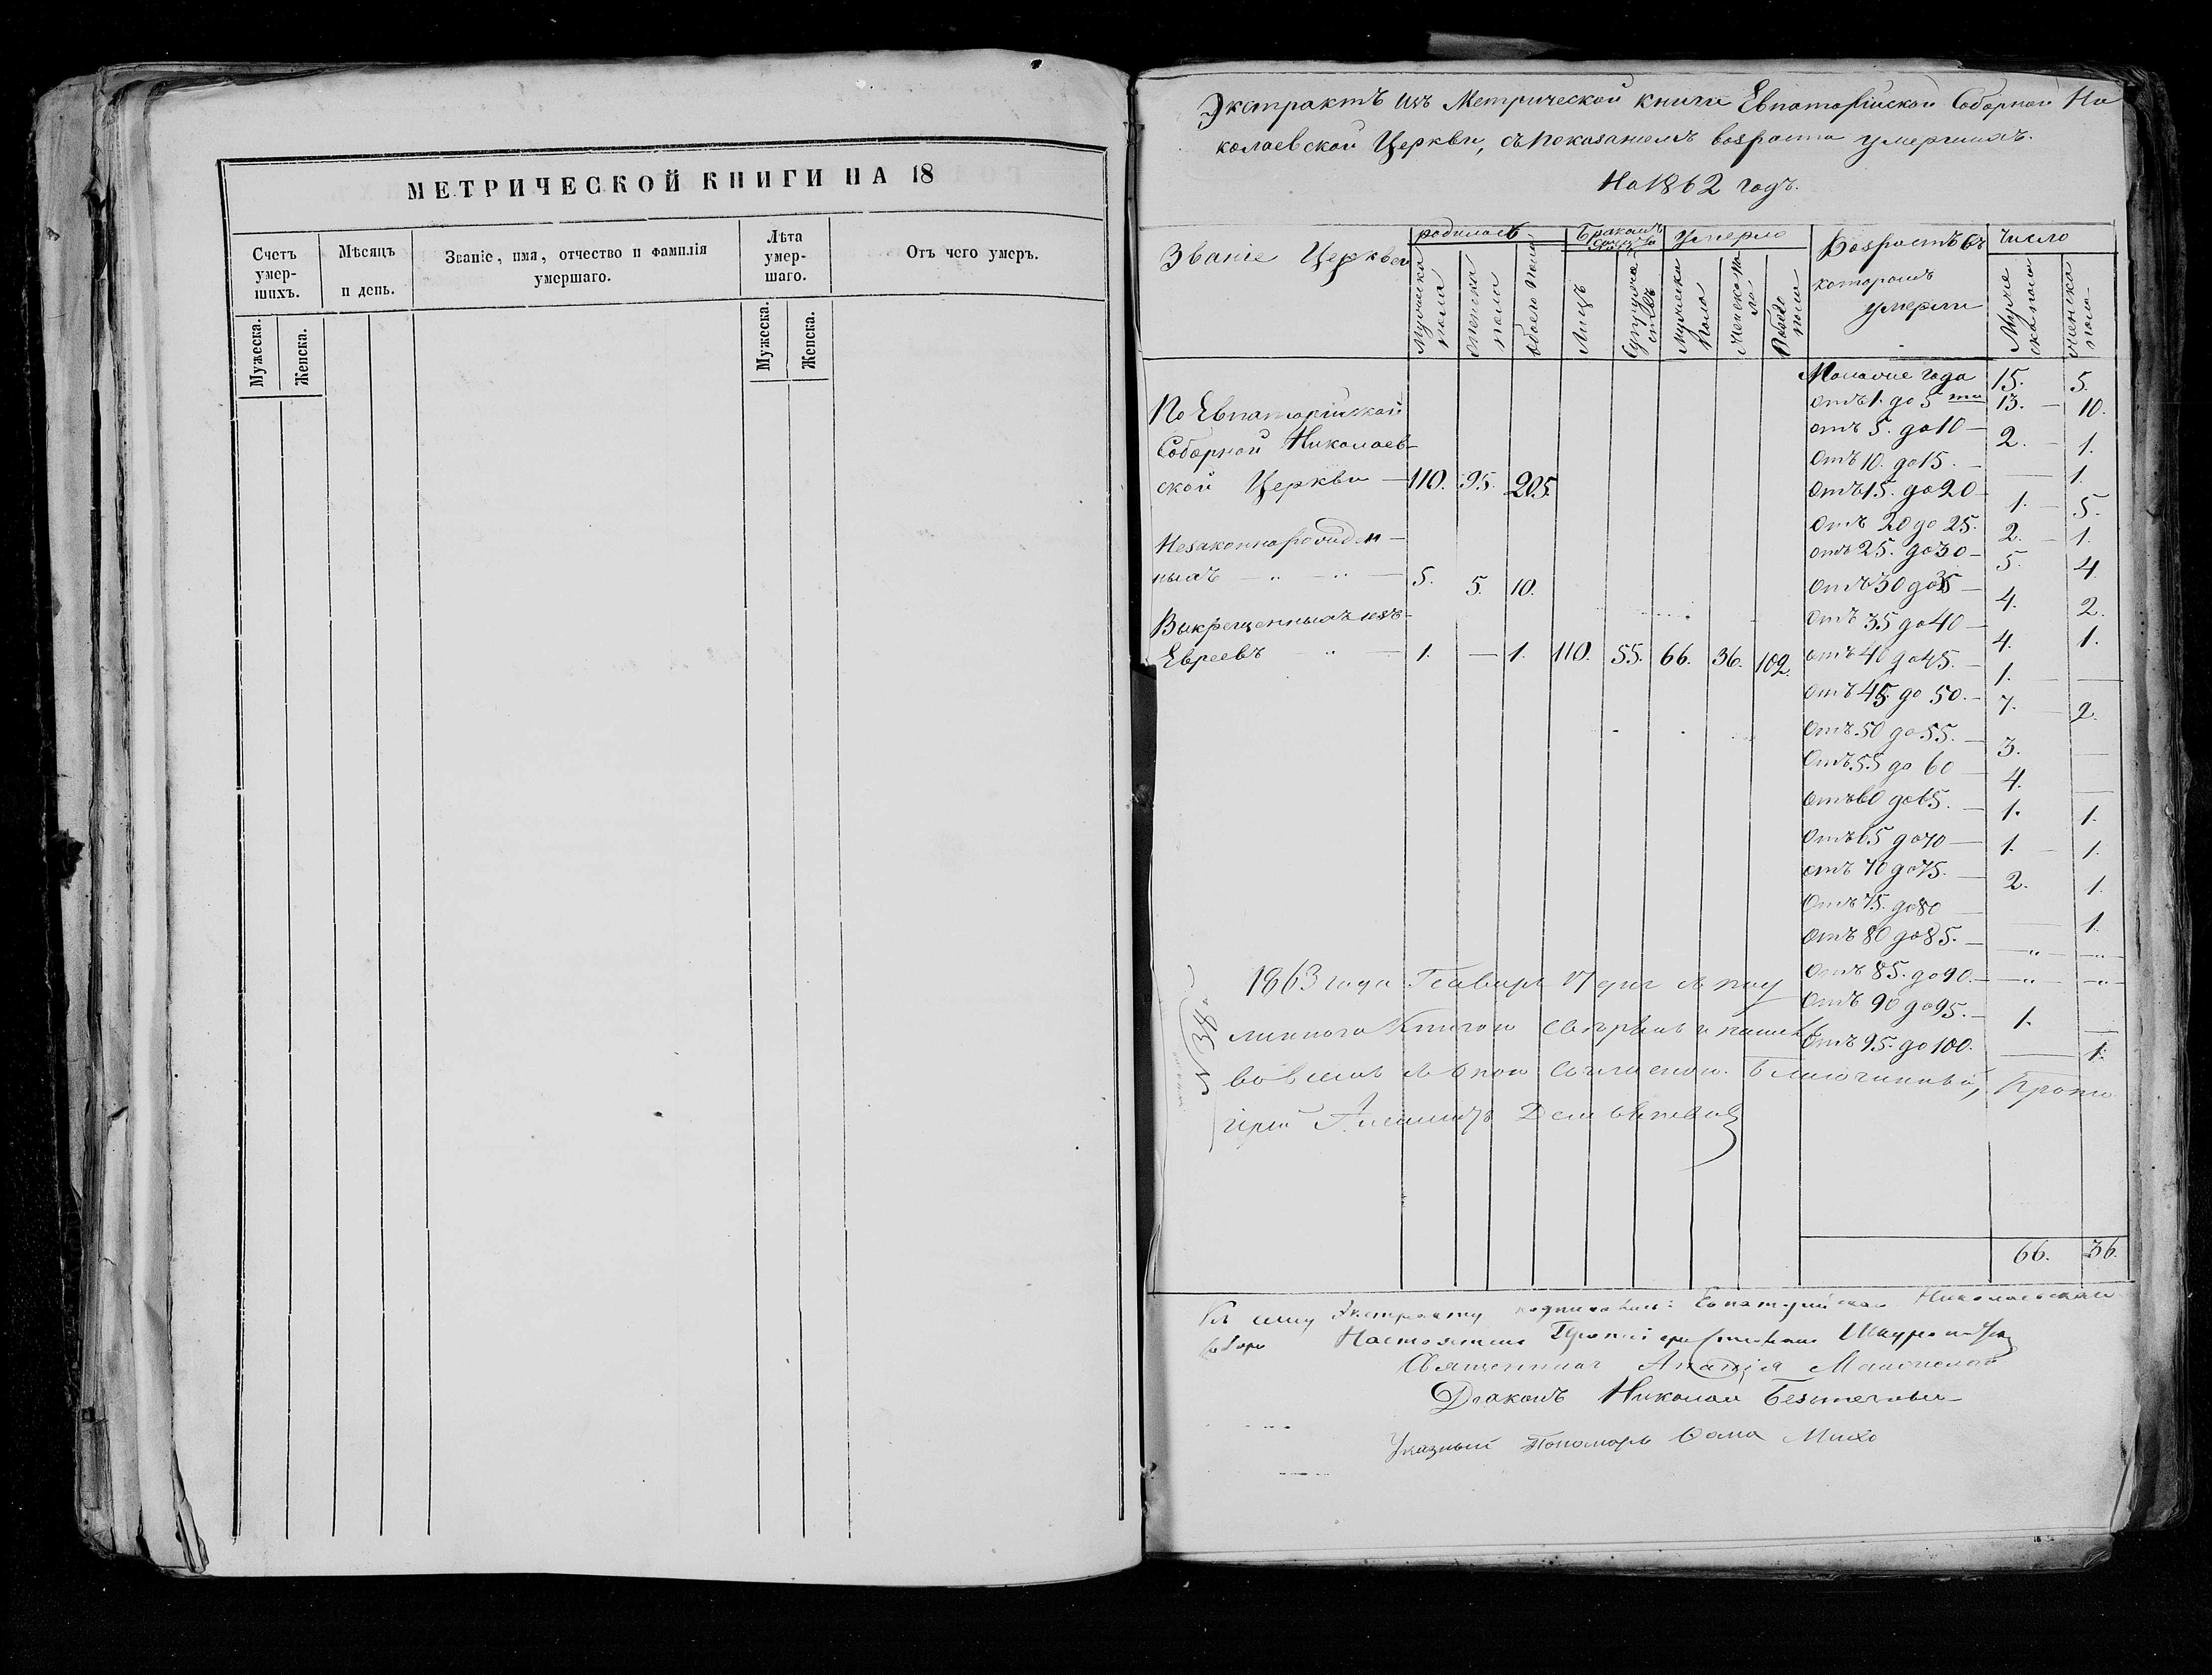 МЕТРИЧЕСКОЙ КНИГИ НА 18
Счетъ умер-шихъ.
Мѣсяцъ и день.
Званіе, имя, отчество и фамилія умершаго.
Лѣта умер-шаго.
Отъ чего умеръ.
Мужеска.
Женска.
Мужеска.
Женска.
Экстрактъ изъ Метрической книги Евпаторійской Соборной Ни
колаевской Церкви, съ показаніемъ возраста умершихъ.
На 1862 годъ.
Званіе Церквей
родилось
Бракомъ
Умерло
Возрастъ въ
которомъ
умерли
Число
Мужеска пола
женска пола
обоего пола
Лицъ
Супружествъ
Мужеска пола
Женска пола
Обоего пола
Муже
ска пола
женска
пола
По Евпаторійской
Соборной Николаев-
ской Церкви — 110. 95. 205.
Незаконнорожден-
ныхъ — „ — „ — 5. 5. 10.
Выкрещенныхъ изъ
Евреевъ „ — 1. — 1. 110. 55. 66. 36. 102.
Моложе года 15. 5.
Отъ 1. до 5 ти 13. — 10.
отъ 5. до 10 — 2. — 1.
Отъ 10. до 15. — — 1.
Отъ 15. до 20 — 1. — 5.
Отъ 20 до 25. 2. — 1.
отъ 25. до 30 — 5. 4.
Отъ 30 до 35 — 4. 2.
Отъ 35 до 40 — 4. 1.
отъ 40 до 45. — 1. —
Отъ 45 до 50. — 7. — 2.
Отъ 50 до 55. — 3. —
Отъ 55 до 60 — 4. —
Отъ 60 до 65. — 1. 1.
Отъ 65 до 70 — 1. — 1.
отъ 70 до 75. — 2. 1.
Отъ 75. до 80 — — 1.
Отъ 80 до 85. — „ „
Отъ 85. до 90. — „ — „
Отъ 90 до 95. — 1. —
Отъ 95. до 100. — 1.
66. 36.
№ 38
1863 года Генваря 17 дня съ под
линною Книгою свѣрялъ и нашелъ
во всемъ съ оною согласною. Благочинный, Прото
іерей
Къ сему Экстракту подписались: Евпаторійскаго Николаевскаго
Собора Настоятель Протоіерей
Священникъ
Діаконъ Николай
Указный Пономарь